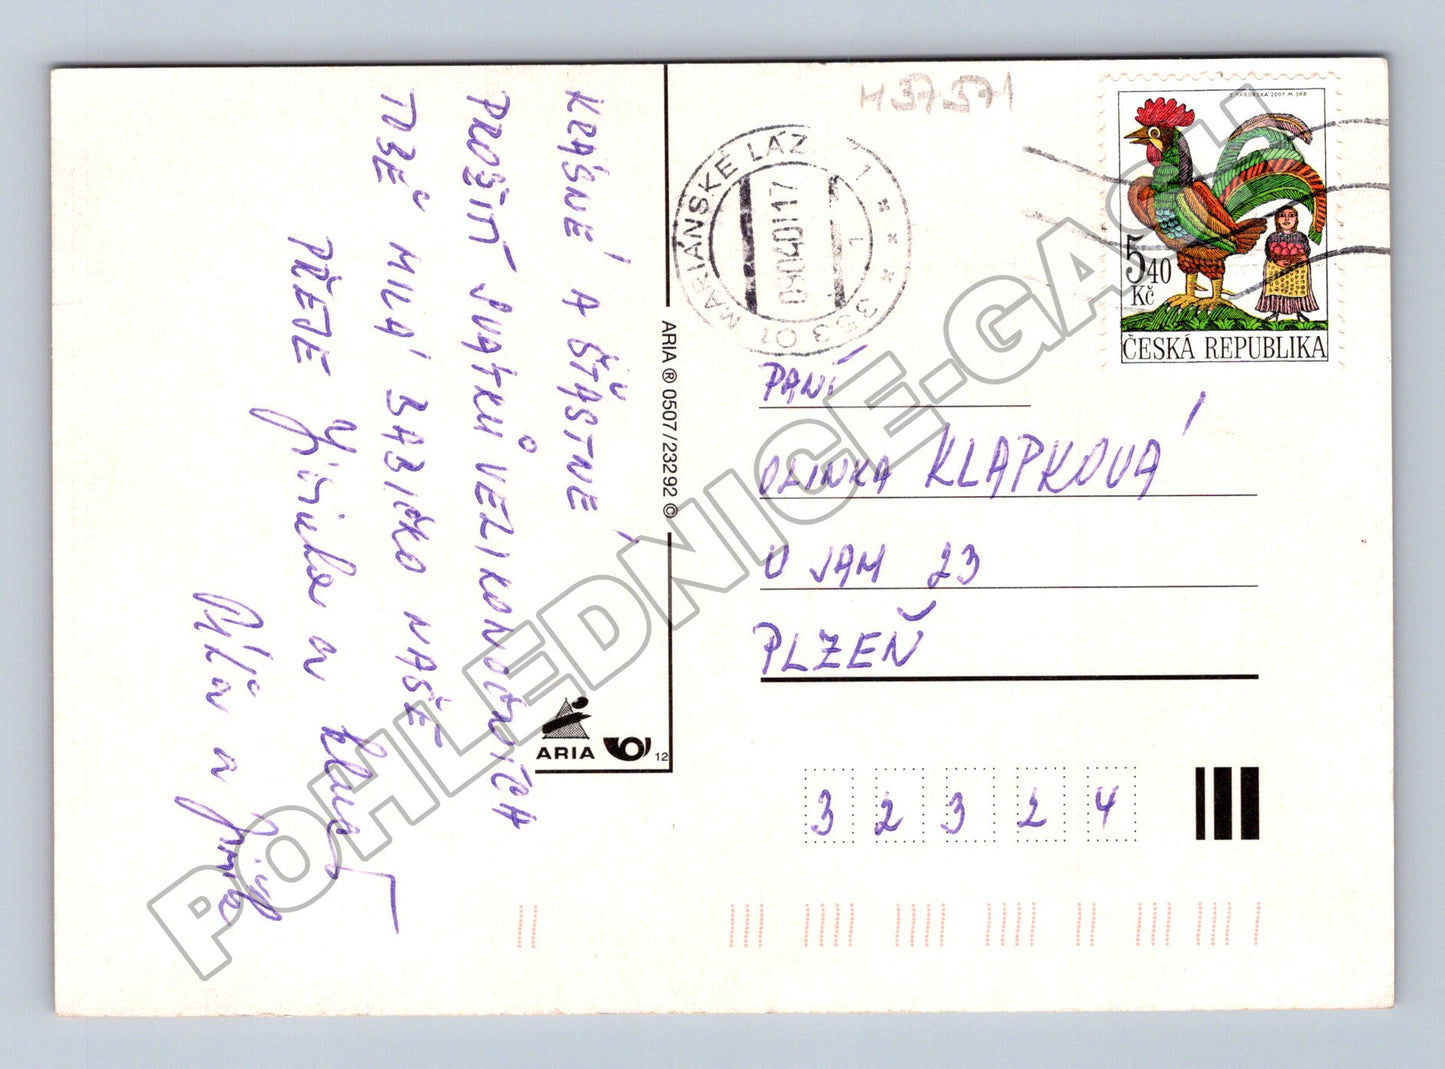 KRÁSNÉ A ŠŤASTNÉ
PROŽITÍ SVÁTKŮ VELIKONOČNÍCH
TOBĚ MILÁ BABIČKO NAŠE
PŘEJE Jiřinka a
Péťa a
M 37571
MARIÁNSKÉ LÁZ
353 01
09.04.01 17
1
T. TÁBORSKÁ 2001 M. SRB
5,40
Kč
ČESKÁ REPUBLIKA
ARIA ® 0507/23292 ©
PANÍ
OLINKA KLAPKOVÁ
U JAM 23
PLZEŇ
ARIA
12
3 2 3 2 4
POHLEDNICE-GASH